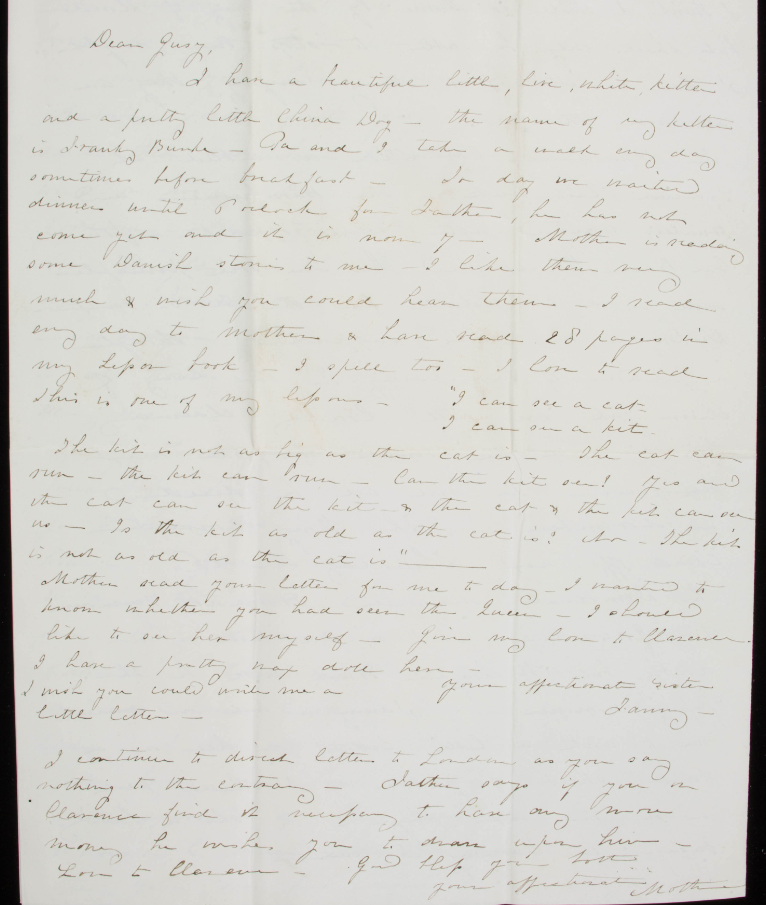 Dear Gusy,
I have a beautiful little, live, white, kitten
and a pretty little China Dog – the name of my kitten
is Franky Bunke – Pa and I take a walk every day
sometimes before breakfast – To day we waited
dinner until 6 oclock for Father, he has not
come yet and it is now 7 – Mother is reading
some Danish stories to me – I like them very
much & wish you could hear them – I read
every day to Mother & have read 28 pages in
my Lesson book – I spell too – I love to read
This is one of my lessons – "I can see a cat–
I can see a kit–
The kit is not as big as the cat is – The cat can
run – the kit can run – Can the kit see! Yes and
the cat can see the kit – & the cat & the kit can see
us – Is the kit as old as the cat is! No – The kit
is not as old as the cat is" –
Mother read your letter for me to day – I wanted to
know whether you had seen the Queen – I should
like to see her myself – Give my love to Clarence.
I have a pretty wax doll here –
I wish you could write me a your affectionate sister
little letter – Fanny –
I continue to direct letters to London as you say
nothing to the contrary – Father says if you or
Clarence find it necessary to have any more
money he wishes you to draw upon him –
Love to Clarence – God bless you both
your affectionate Mother